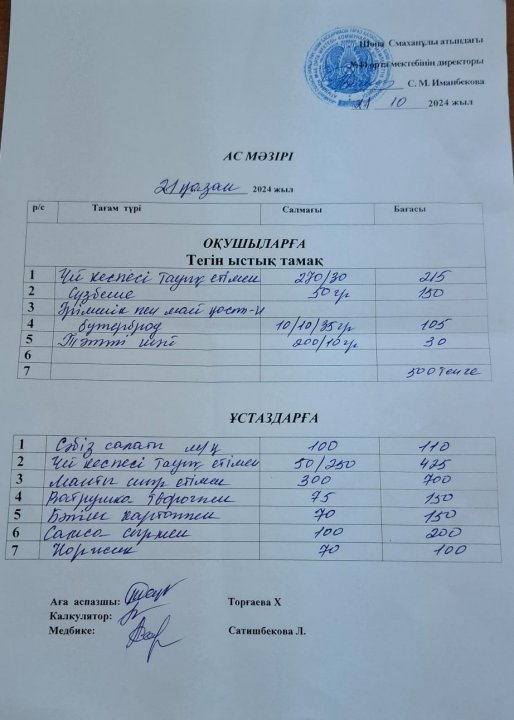 Шона Смаханұлы атындағы
№40 орта мектебінің директоры
С. М. Иманбекова
21 10 2024 жыл
АС МӘЗІРІ
21 қазан 2024 жыл
р/с Тағам түрі Салмағы Бағасы
ОҚУШЫЛАРҒА
Тегін ыстық тамақ
1 Үй кеспесі тауық етімен 270/30 215
2 Сүзбеше 50 гр 150
3 Ірімшік пен май қост-н
4 бутерброд 10/10/35гр 105
5 Тәтті шәй 200/10гр 30
6
7 500 теңге
ҰСТАЗДАРҒА
1 Сәбіз салаты м/қ 100 110
2 Үй кеспесі тауық етімен 50/250 425
3 Манты сиыр етімен 300 700
4 Ватрушка творогпен 75 150
5 Бәліш картоппен 70 150
6 Самса сырмен 100 200
7 70 100
Аға аспазшы: Торғаева Х
Калкулятор:
Медбике: Сатишбекова Л.